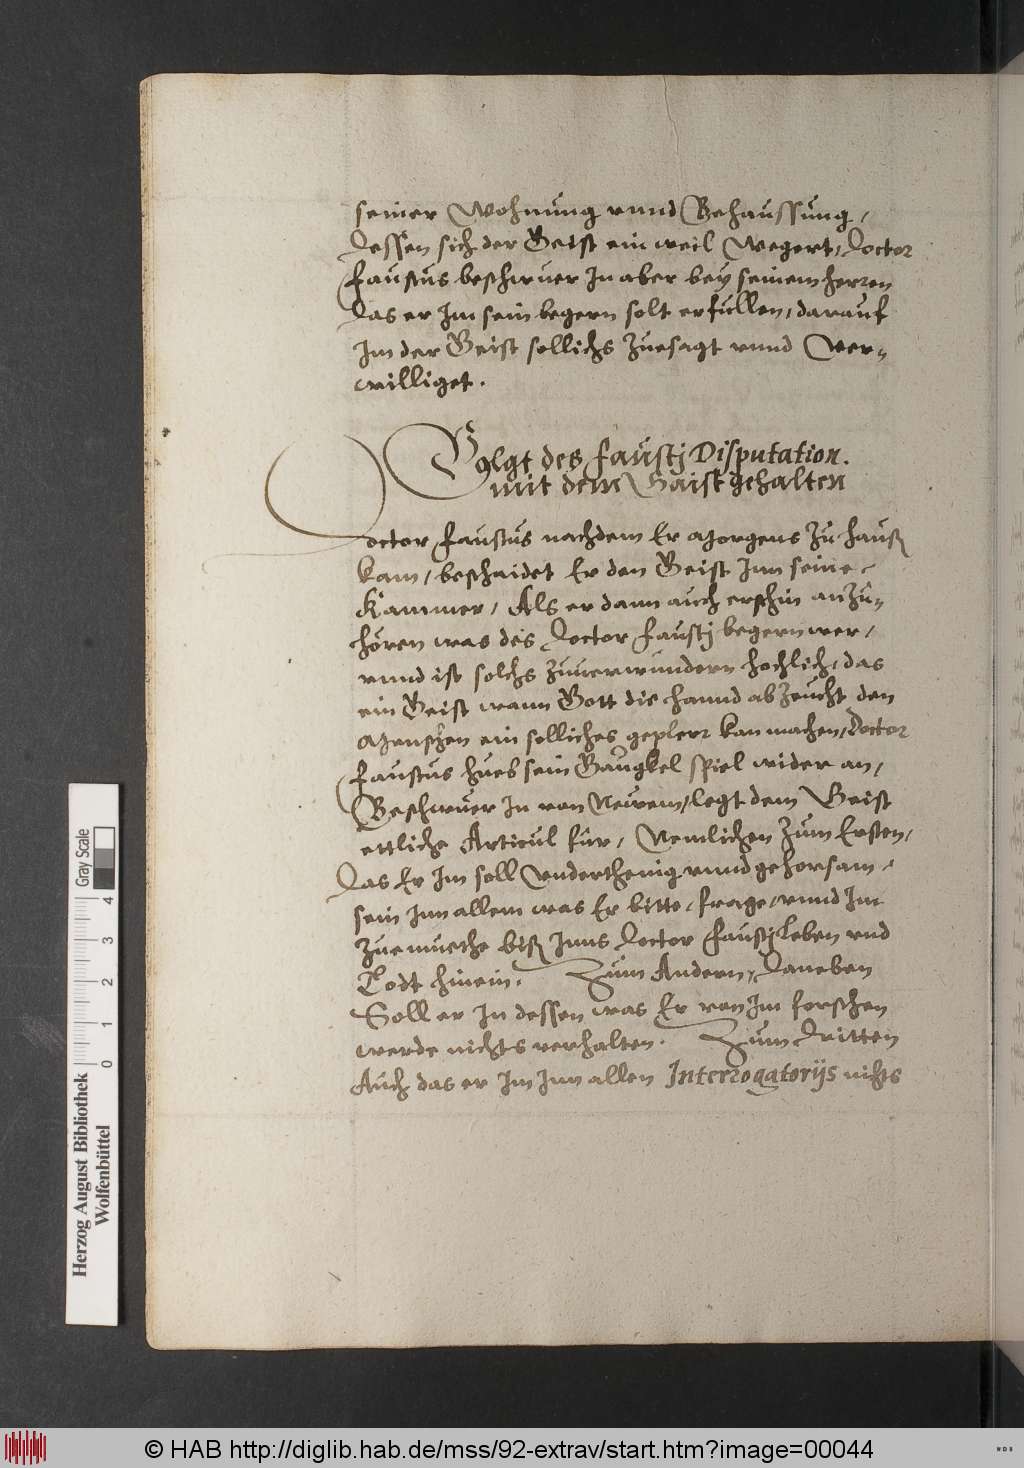 seiner Wohnung vnnd Behaussung,
Dessen sich der Geist ein weil Wegert, Doctor
Faustus beschwuer In aber bey seinem herren
Das er Im sein begern solt erfüllen, darauf
Im der Geist sollichs Zuesagt vnnd Ver=
williget.
Volgt des Faustj Disputation.
mit dem Gaist gehalten
Doctor Faustus nachdem Er Morgens Zu hauß
kam, beschaidet Er den Geist Inn seine
Kammer, Als er dann auch erschin anZu=
hören was des Doctor Faustj begern wer,
vnnd ist solchs Zuuerwundern hochlich, das
ein Geist wann Gott die hannd abZeucht den
Menschen ein solliches geplerr kan machen, Doctor
Faustus hueb sein Gaugkel spiel wider an,
Beschwuer In von Newem, legt dem Geist
ettliche Articul für, Nemlichen Zum Ersten,
Das Er Im soll Vnderthenig vnnd gehorsam
sein Inn allem was Er bitte, frage, vnnd Im
Zuemuethe biß Inns Doctor Faustj Leben vnd
Todt hinein. Zum Andern, Daneben
Soll er In dessen was Er von Im forschen
werde nichts verhalten. Zum Dritten
Auch das er Im Inn allen Interrogatorijs nichts
Herzog August Bibliothek
Wolfenbüttel
0 1 2 3 4
Gray Scale
© HAB http://diglib.hab.de/mss/92-extrav/start.htm?image=00044